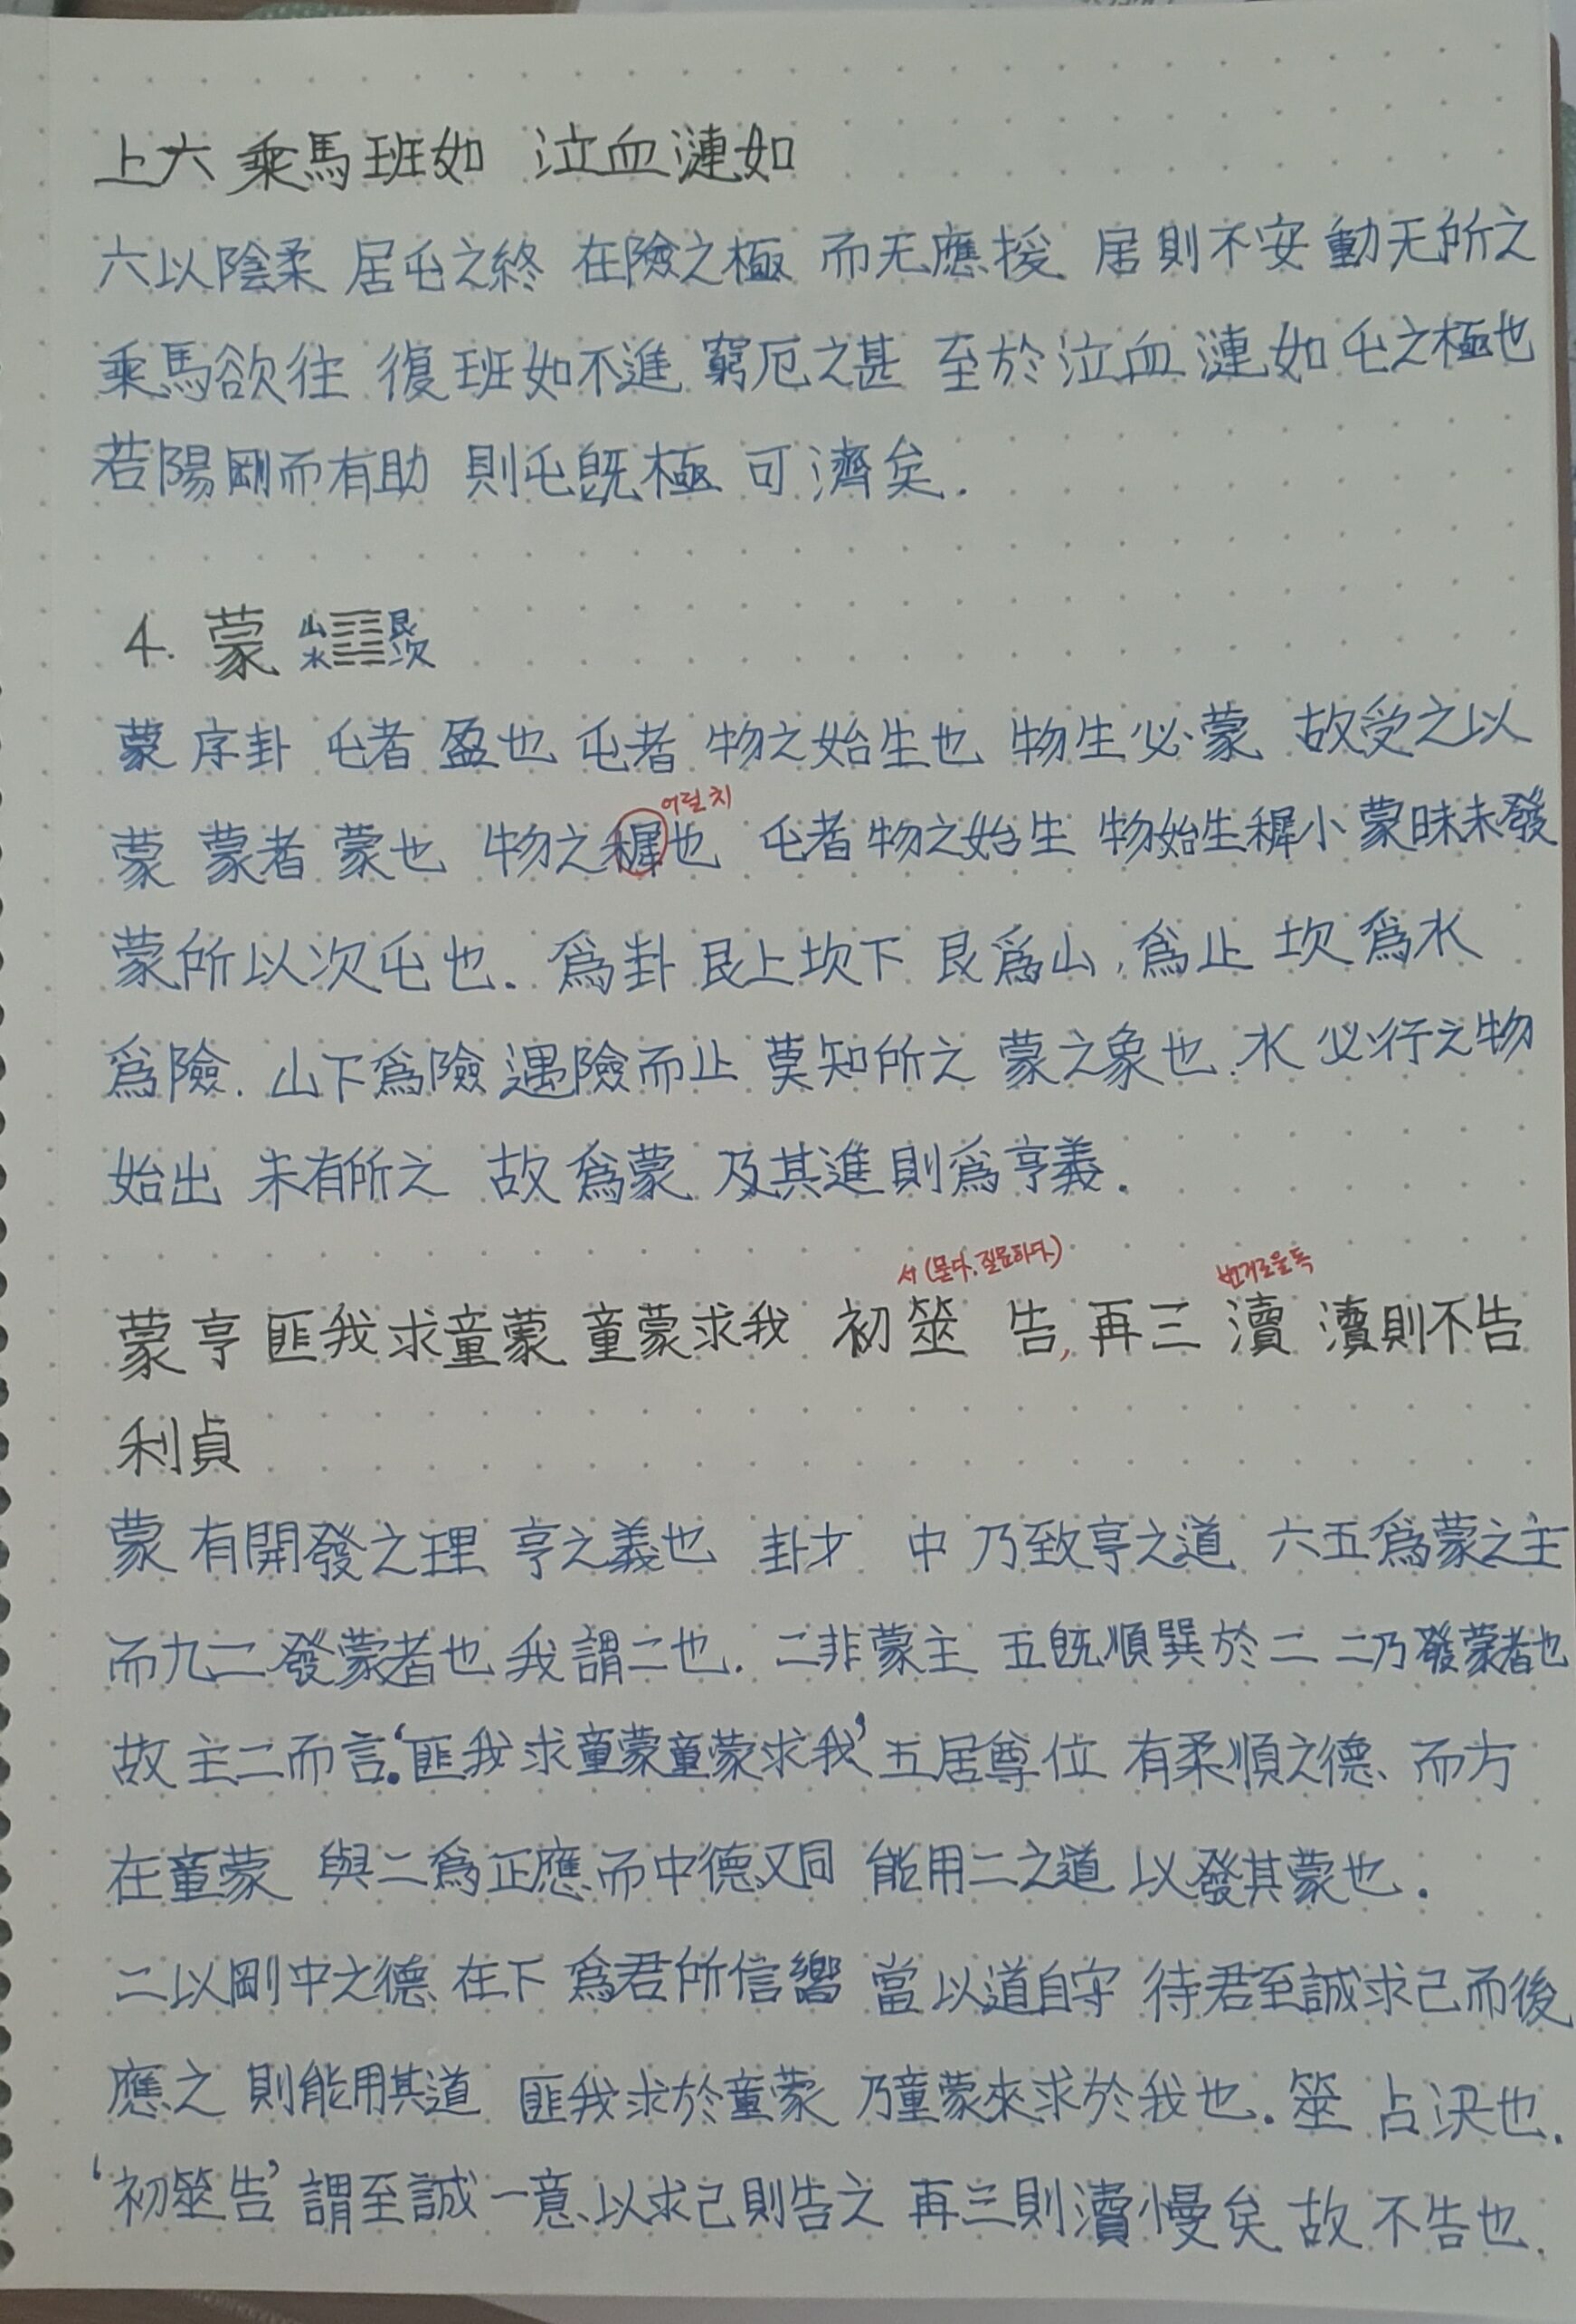 上六 乘馬班如 泣血漣如
六以陰柔 居屯之終 在險之極 而无應援 居則不安 動无所之
乘馬欲往 復班如不進 窮厄之甚 至於泣血漣如 屯之極也
若陽剛而有助 則屯旣極 可濟矣.
4. 蒙 山水 ䷃ 艮坎
蒙 序卦 屯者 盈也 屯者 物之始生也 物生必蒙 故受之以
어릴 치
蒙 蒙者 蒙也 物之穉也 屯者 物之始生 物始生穉小 蒙昧未發
蒙所以次屯也. 爲卦 艮上坎下 艮爲山, 爲止 坎爲水
爲險. 山下爲險 遇險而止 莫知所之 蒙之象也. 水 必行之物
始出 未有所之 故爲蒙 及其進 則爲亨義.
서(묻다, 질문하다) 번거로울 독
蒙 亨 匪我求童蒙 童蒙求我 初筮 告, 再三 瀆 瀆則不告
利貞
蒙 有開發之理 亨之義也 卦才 中 乃致亨之道 六五爲蒙之主
而九二 發蒙者也 我謂二也. 二非蒙主 五旣順巽於二 二乃發蒙者也
故主二而言. ‘匪我求童蒙童蒙求我’ 五居尊位 有柔順之德 而方
在童蒙 與二爲正應 而中德又同 能用二之道 以發其蒙也.
二以剛中之德 在下 爲君所信嚮 當以道自守 待君至誠求己而後
應之 則能用其道 匪我求於童蒙 乃童蒙來求於我也. 筮 占決也.
‘初筮告’ 謂至誠一意 以求己則告之 再三則瀆慢矣 故不告也.